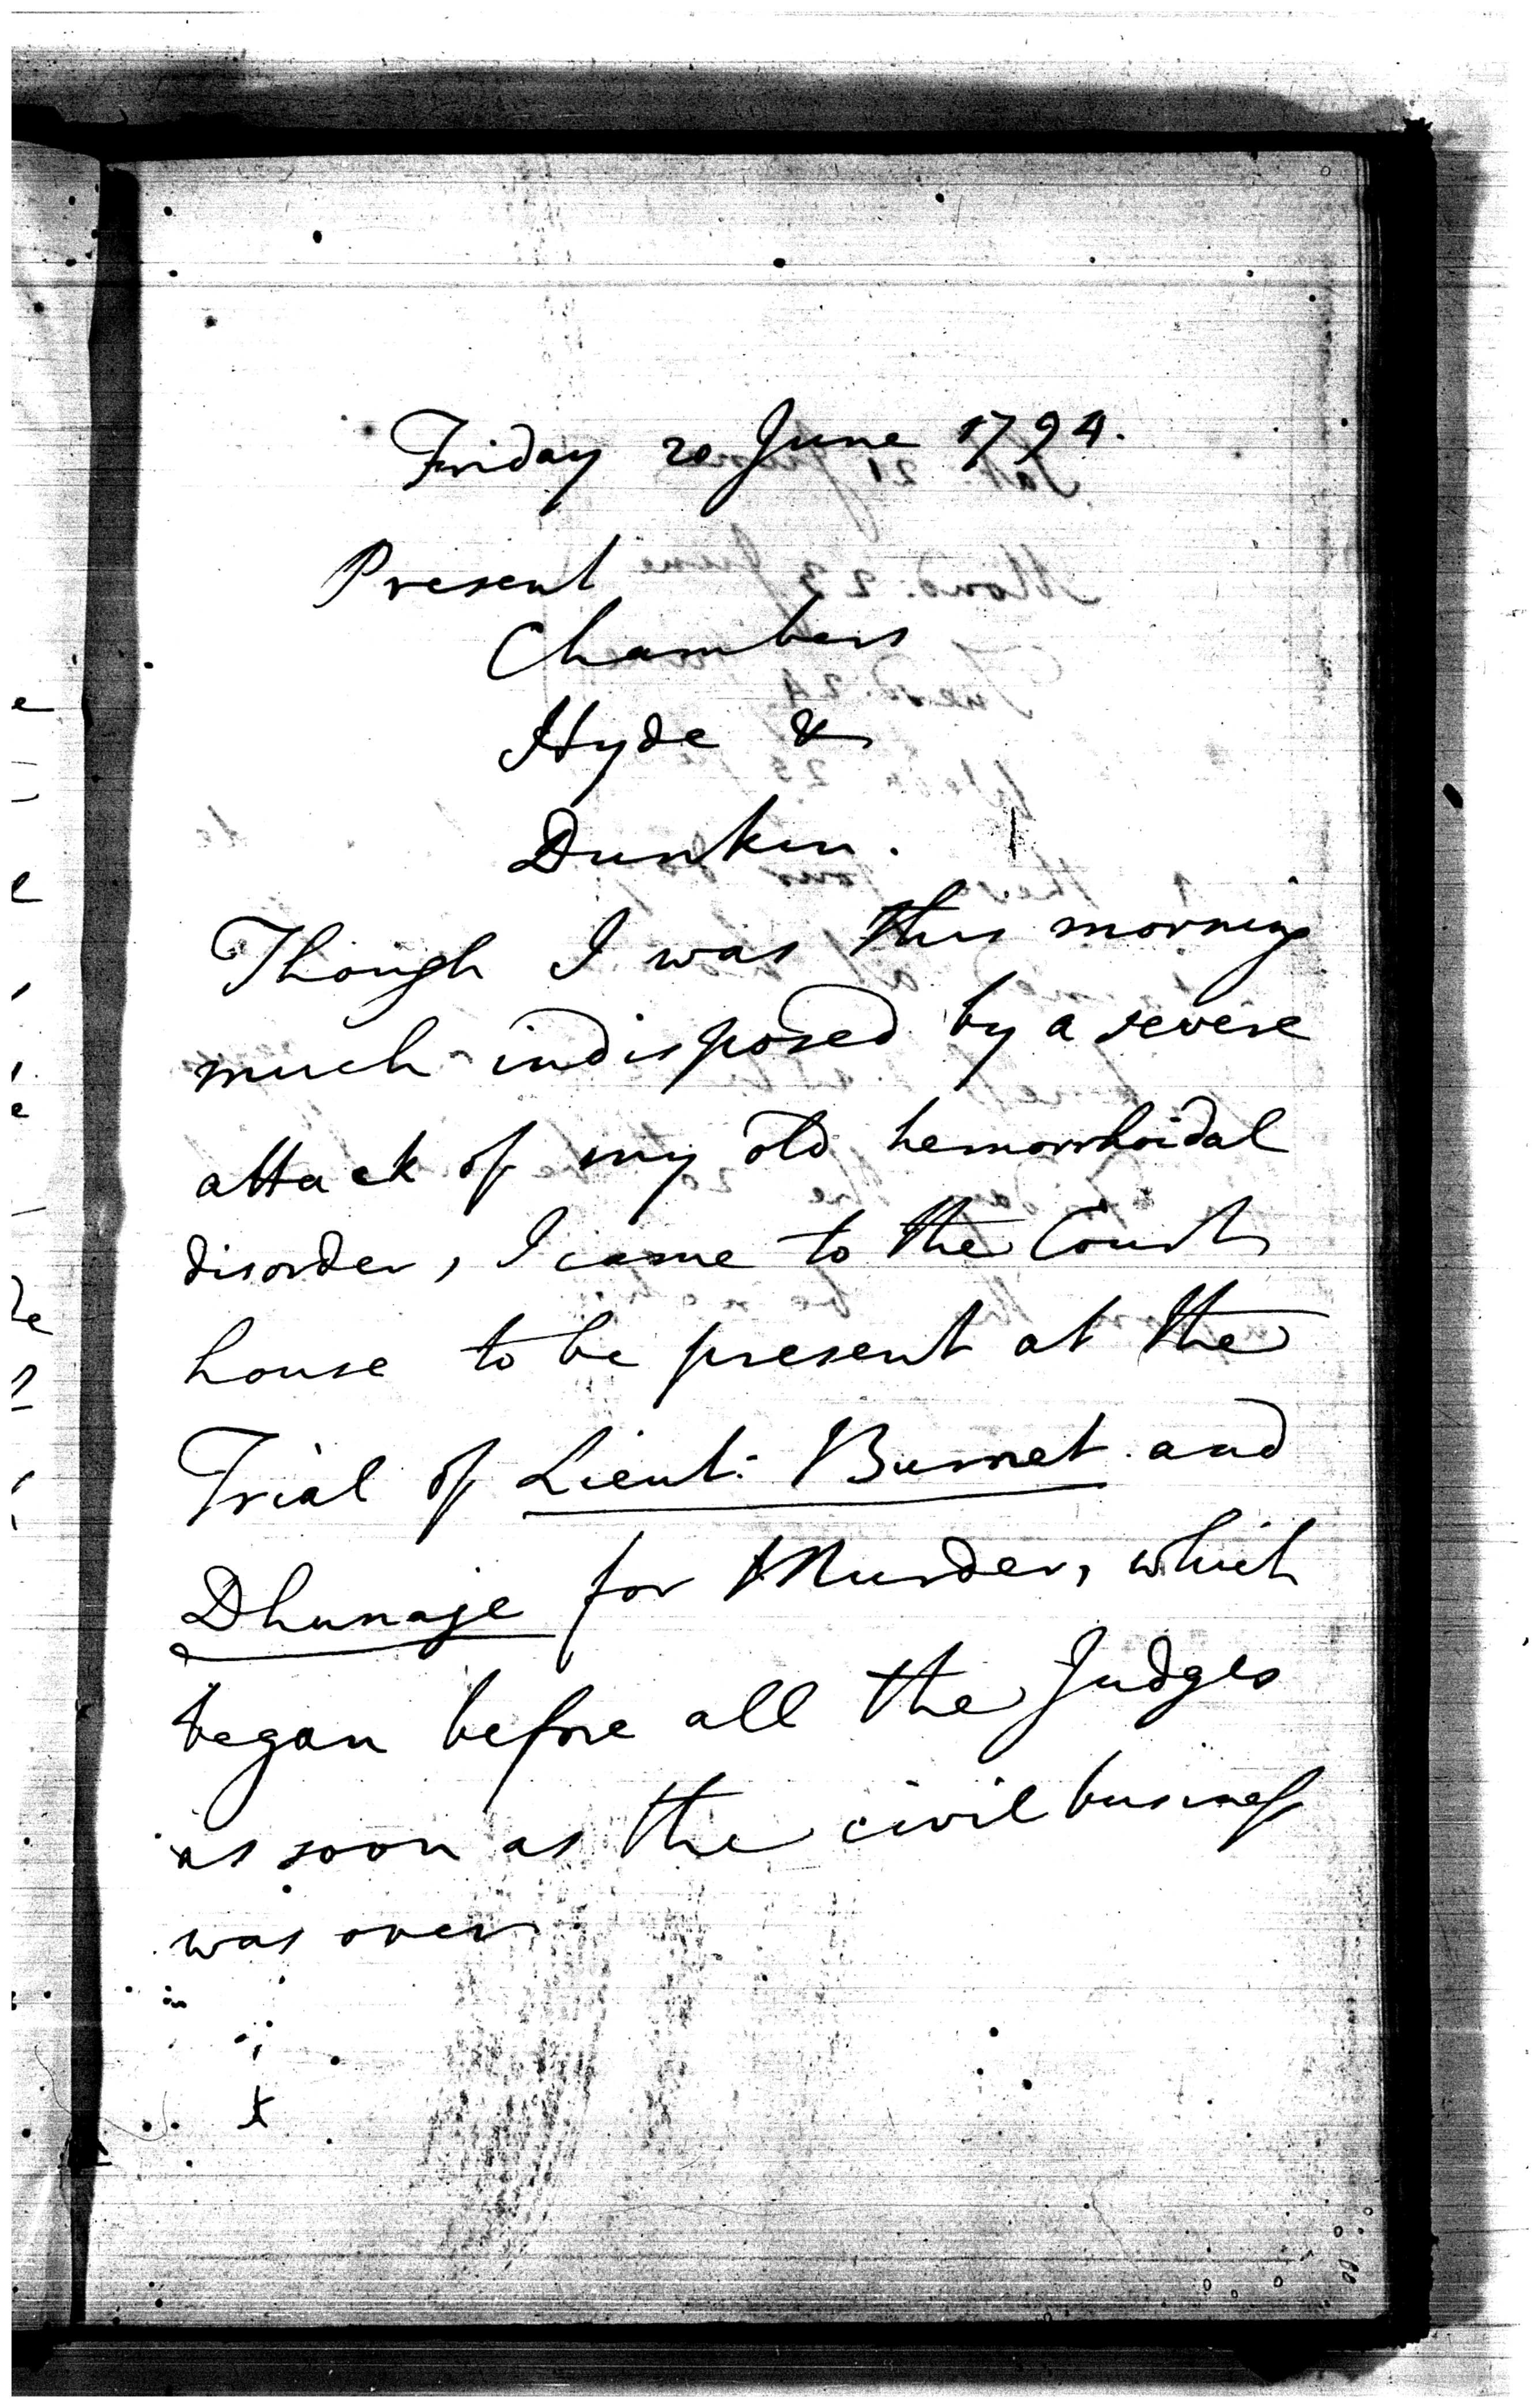 Friday 20 June 1794.
Present
Chambers
Hyde &
Dunkin.
Though I was this morning
much indisposed by a severe
attack of my old hemorrhoidal
disorder, I came to the Court
house to be present at the
Trial of Lieut: Burnet and
Dhunaje for Murder, which
began before all the Judges
as soon as the civil business
was over.